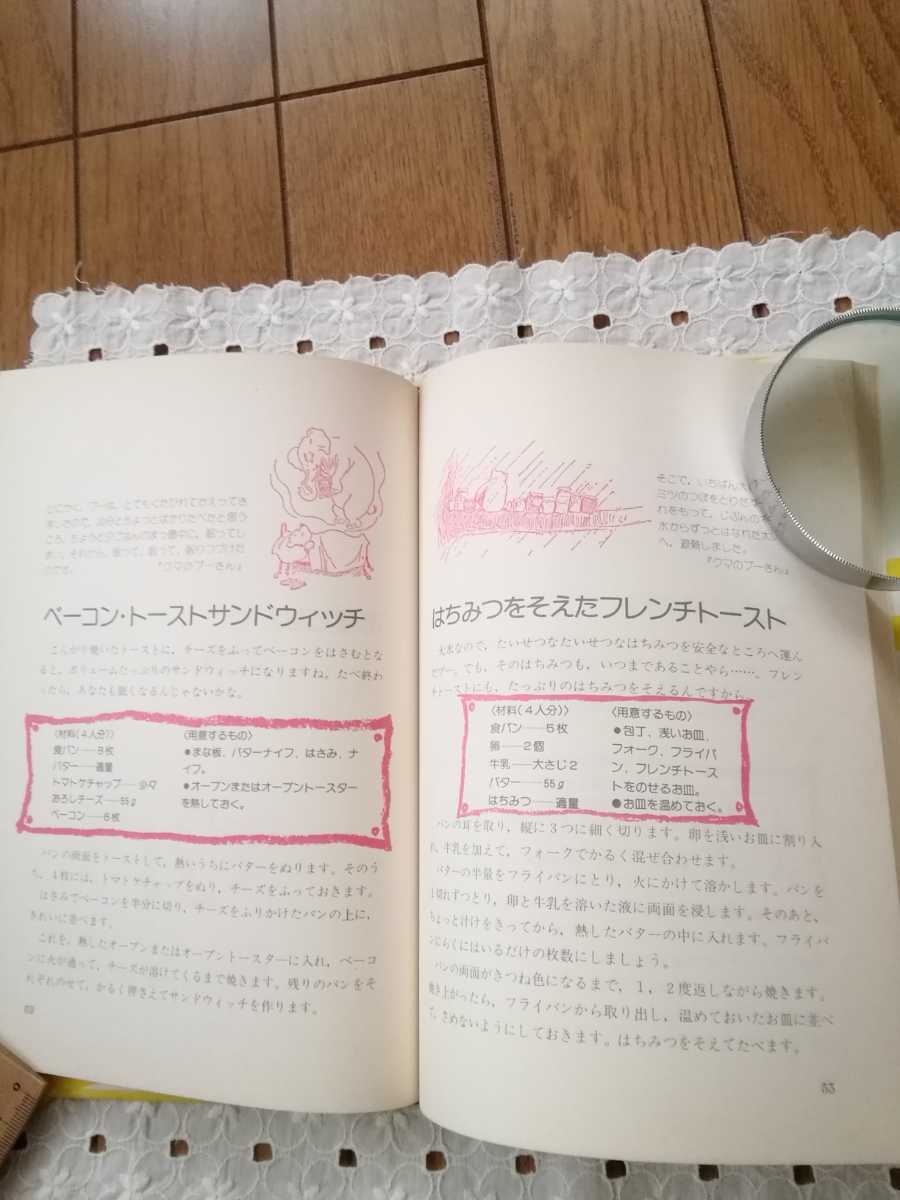 とにかく、プーは、とてもくたびれてかえってき
ましたので、自分とちょっとばかりたべたかと思う
ころ、ちょうど夕ごはんのまっ最中に、眠ってし
まい、それから、眠って、眠って、眠りつづけた
のです。
『クマのプーさん』
ベーコン・トーストサンドウィッチ
こんがり焼いたトーストに、チーズをふってベーコンをはさむとな
ると、ボリュームたっぷりのサンドウィッチになりますね。たべ終わ
ったら、あなたも眠くなるんじゃないかな。
〈材料(4人分)〉
食パン……8枚
バター……適量
トマトケチャップ……少々
おろしチーズ……55g
ベーコン……6枚
〈用意するもの〉
●まな板、バターナイフ、はさみ、ナ
イフ。
●オーブンまたはオーブントースター
を熱しておく。
パンの両面をトーストして、熱いうちにバターをぬります。そのう
ち、4枚には、トマトケチャップをぬり、チーズをふっておきます。
はさみでベーコンを半分に切り、チーズをふりかけたパンの上に、
きれいに並べます。
これを、熱したオーブンまたはオーブントースターに入れ、ベーコ
ンに火が通って、チーズが溶けてくるまで焼きます。残りのパンをそ
れぞれのせて、かるく押さえてサンドウィッチを作ります。
そこで、いちばん
ミツのつぼをとりだ
れをもって、じぶんの
水からずっとはなれた太
へ、避難しました。
『クマのプーさん』
はちみつをそえたフレンチトースト
大水なので、たいせつなたいせつなはちみつを安全なところへ運ん
だプー。でも、そのはちみつも、いつまであることやら……。フレン
チトーストにも、たっぷりのはちみつをそえるんですから。
〈材料(4人分)〉
食パン……5枚
卵……2個
牛乳……大さじ2
バター……55g
はちみつ……適量
〈用意するもの〉
●包丁、浅いお皿、
フォーク、フライパ
ン、フレンチトース
トをのせるお皿。
●お皿を温めておく。
パンの耳を取り、縦に3つに細く切ります。卵を浅いお皿に割り入
れ、牛乳を加えて、フォークでかるく混ぜ合わせます。
バターの半量をフライパンにとり、火にかけて溶かします。パンを
1切れずつとり、卵と牛乳を溶いた液に両面を浸します。そのあと、
ちょっと汁けをきってから、熱したバターの中に入れます。フライパ
ンにらくにはいるだけの枚数にしましょう。
パンの両面がきつね色になるまで、1、2度返しながら焼きます。
焼き上がったら、フライパンから取り出し、温めておいたお皿に並べ
て、さめないようにしておきます。はちみつをそえてたべます。
53